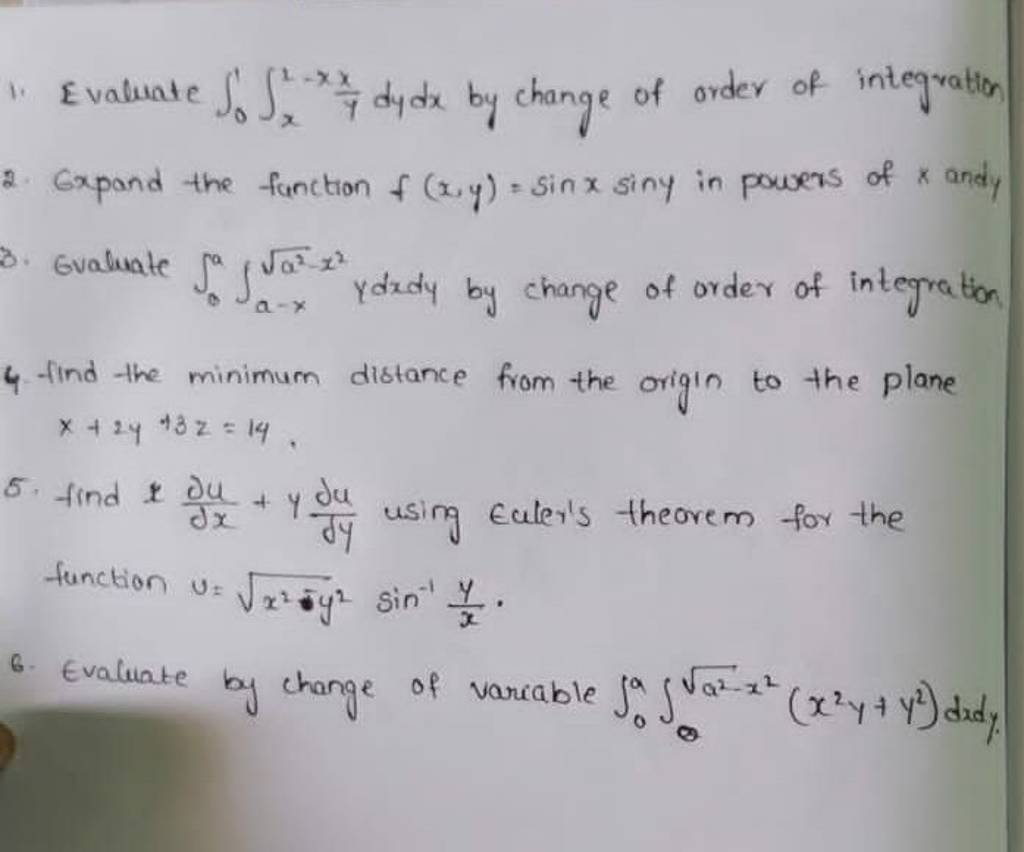 1. Evaluate ∫₀¹ ∫ₓ^{2-x} x/y dydx by change of order of integration
2. Expand the function f (x,y) = sin x siny in powers of x andy
3. Evaluate ∫₀^a ∫_{a-x}^{√a²-x²} ydxdy by change of order of integration
4. find the minimum distance from the origin to the plane
x + 2y +3z = 14.
5. find x ∂u/∂x + y ∂u/∂y using Euler's theorem for the
function u = √x²-y² sin⁻¹ y/x.
6. Evaluate by change of variable ∫₀^a ∫₀^{√a²-x²} (x²y + y²) dxdy.